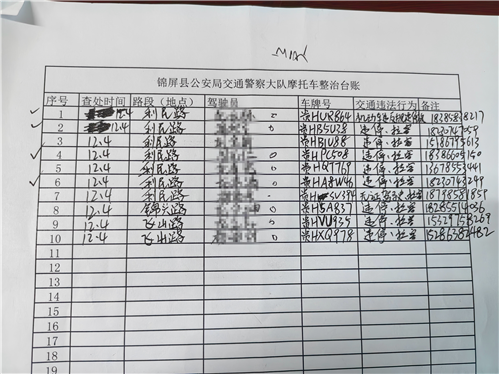 锦屏县公安局交通警察大队摩托车整治台账
序号 查处时间 路段（地点） 驾驶员 车牌号 交通违法行为 备注
1 12.4 利民路 贵HUR864 18285838217
2 12.4 利民路 贵HB5U28 违停、拉客
3 12.4 利民路 贵HBJU88 违停、拉客 15186795613
4 12.4 利民路 贵HPC508 违停、拉客 18386605150
5 12.4 利民路 贵HQ7769 违停、拉客 13678553441
6 12.4 利民路 贵HA8W46 违停、拉客 18230743299
7 12.4 利民路 18798581859
8 12.4 贵H5A837 违停、拉客 18285514036
9 12.4 飞山路 贵HVU935 违停、拉客 15329758269
10 12.4 飞山路 贵HXQ978 违停、拉客 15286382482
11
12
13
14
15
16
17
18
19